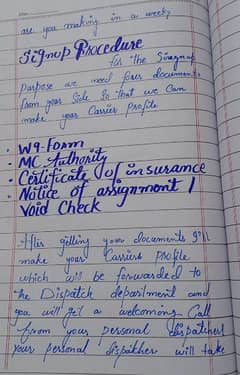 are you making in a week
Signup Procedure
for the Sinegnup
purpose we need four documents
from your side So that we can
make your Carrier profile
• W9-Form
• MC Authority
• Certificate of insurance
• Notice of assignment /
Void Check
After getting your documents I'll
make your Carriers Profile
which will be forwarded to
the Dispatch department and
you will get a welcoming Call
from your personal dispatcher
your personal dispatcher will take